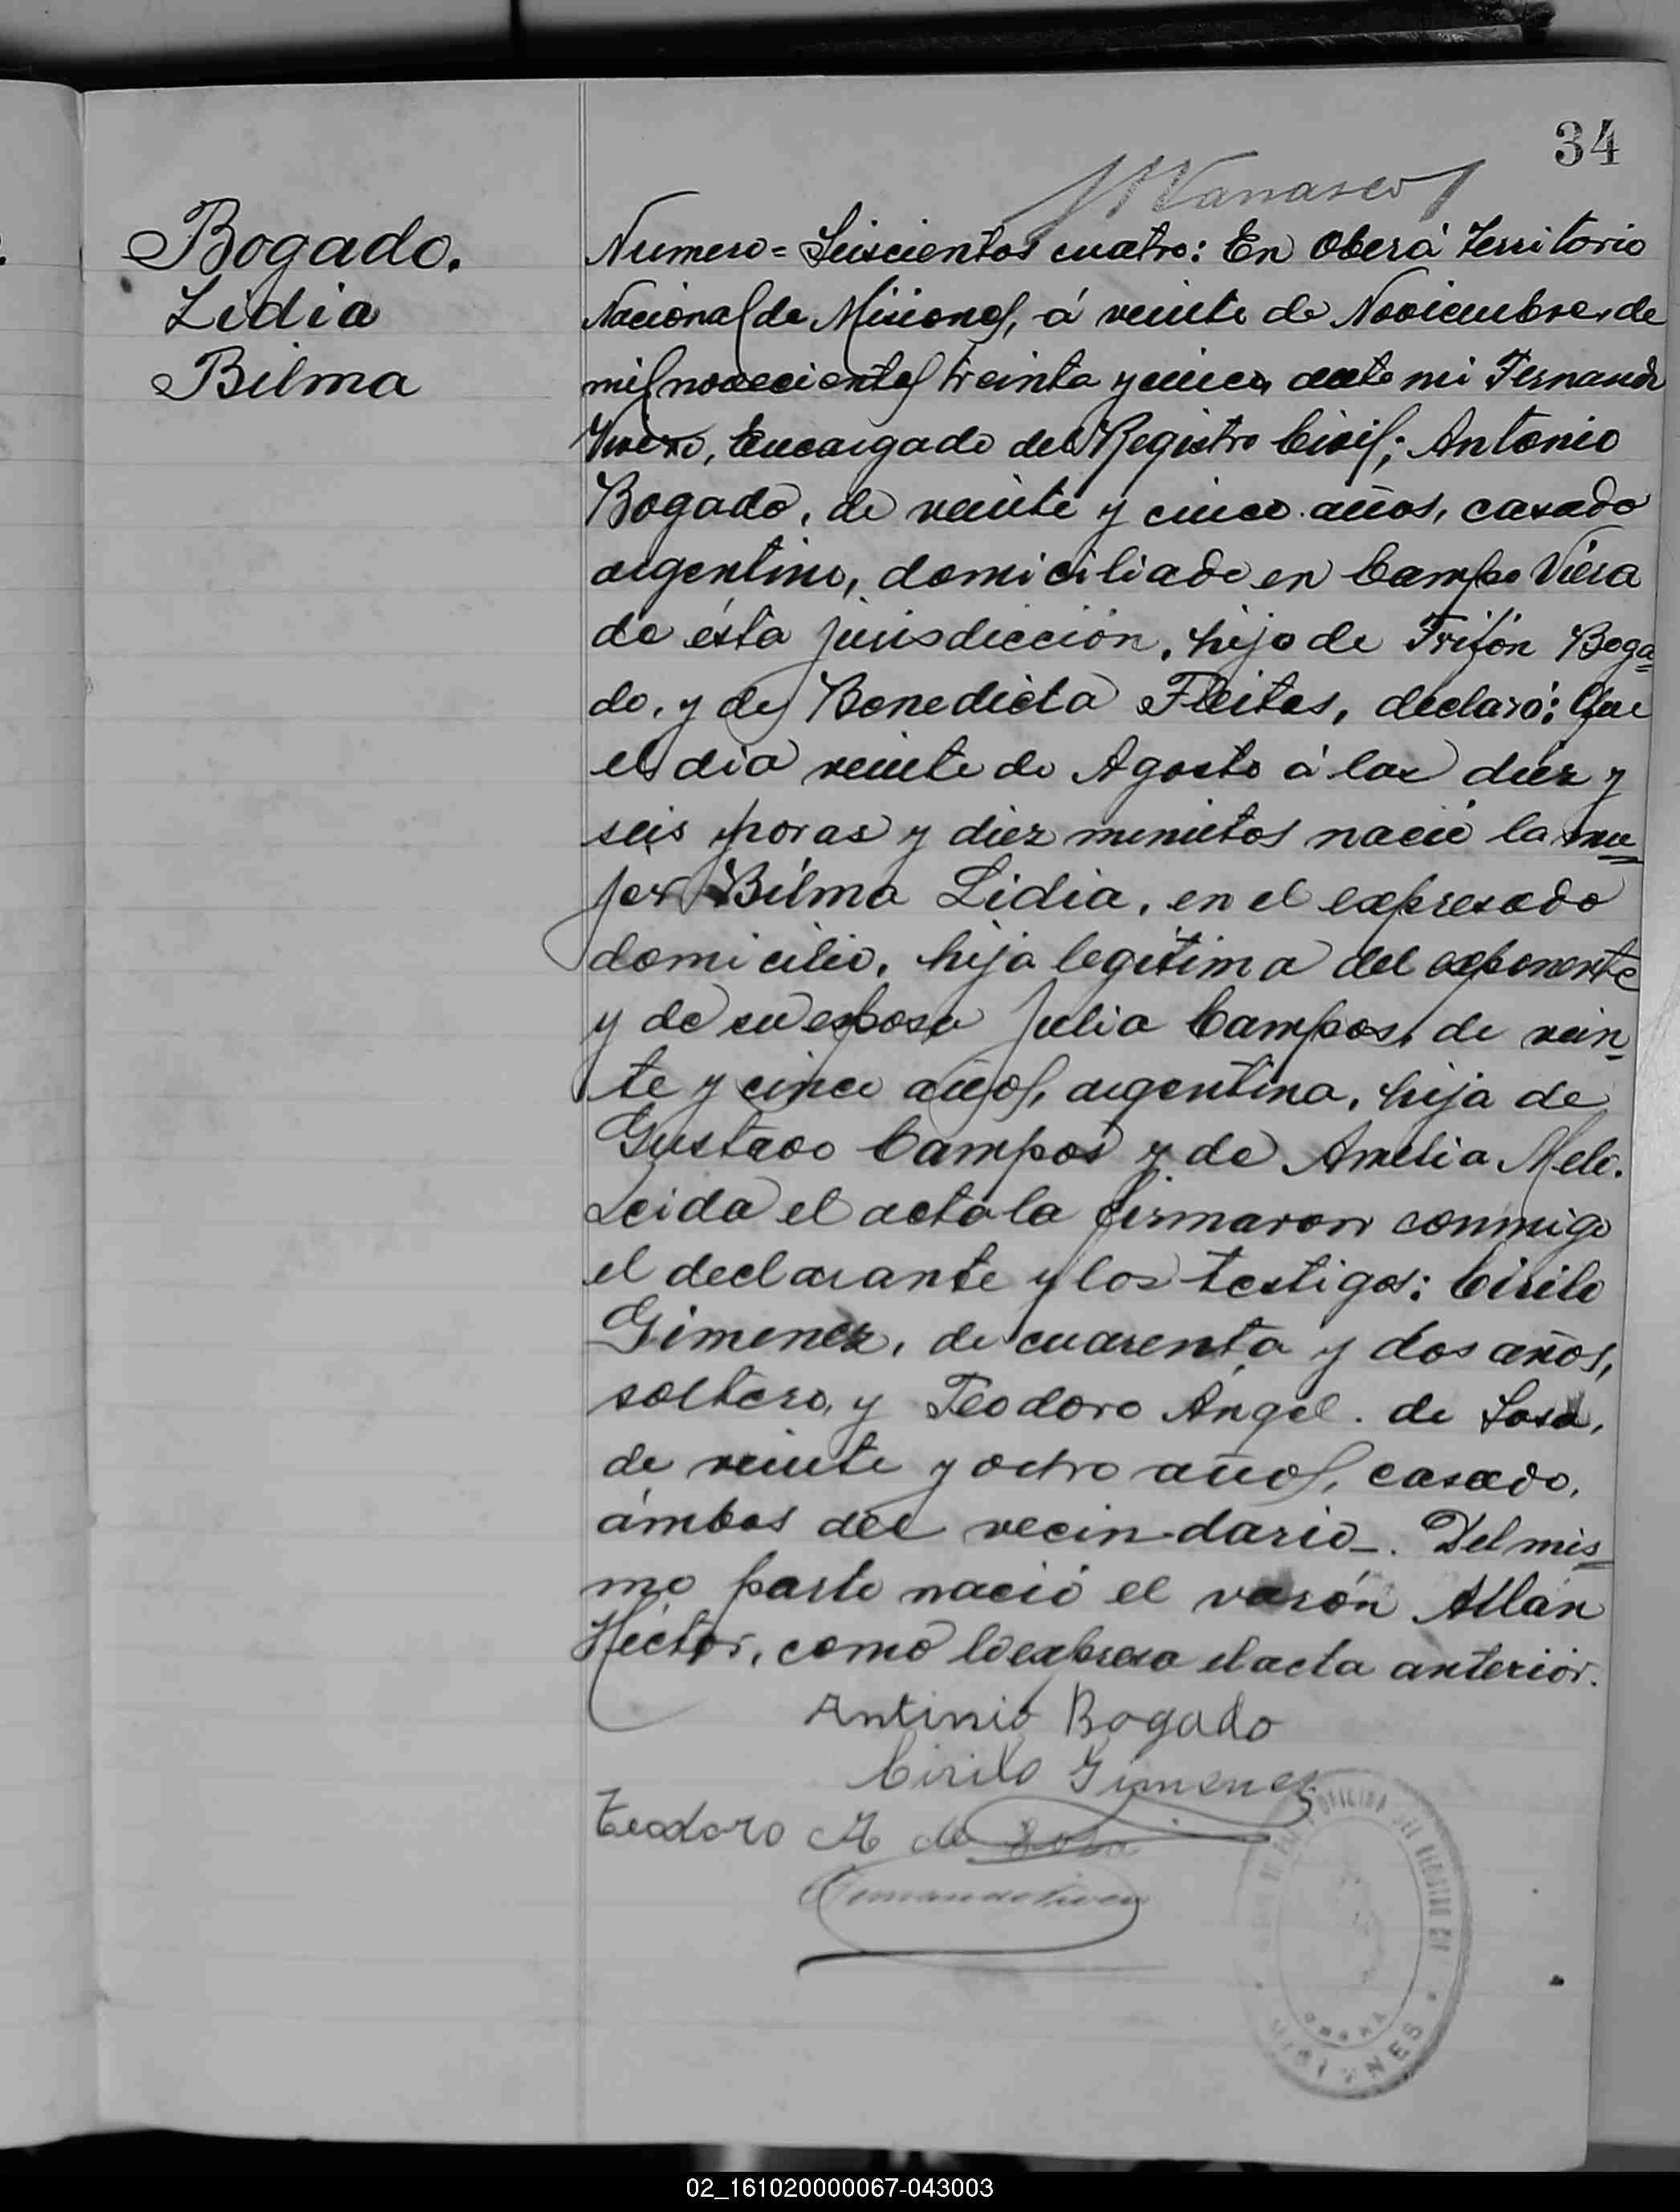 34
Bogado.
Lidia
Bilma
Numero = Seiscientos cuatro: En Oberá Territorio
Nacional de Misiones, á veinte de Noviembre de
mil novecientos treinta y cinco, ante mi Fernando
Encargado del Registro Civil; Antonio
Bogado, de veinte y cinco años, casado
argentino, domiciliado en Campo Viera
de ésta jurisdicción, hijo de Trifón Boga=
do, y de Benedicta Fleitas, declaró: Que
el dia veinte de Agosto á las diez y
seis horas y diez minutos nació la mu=
jer Bilma Lidia, en el expresado
domicilio, hija legitima del exponente
y de su esposa Julia Campos, de vein=
te y cinco años, argentina, hija de
Gustavo Campos y de Amelia Melo.
Leida el acta la firmaron conmigo
el declarante y los testigos: Cirilo
Gimenez, de cuarenta y dos años,
soltero, y Teodoro Angel. de Sosa,
de veinte y ocho años, casado,
ámbos del vecindario_. Del mis=
mo parto nació el varón Allan
Héctor, como lo expresa el acta anterior.
Antinio Bogado
Cirilo Gimenez
Teodoro A de Sosa
OFICINA DEL REGISTRO CIVIL
OBERA
MISIONES
02_161020000067-043003